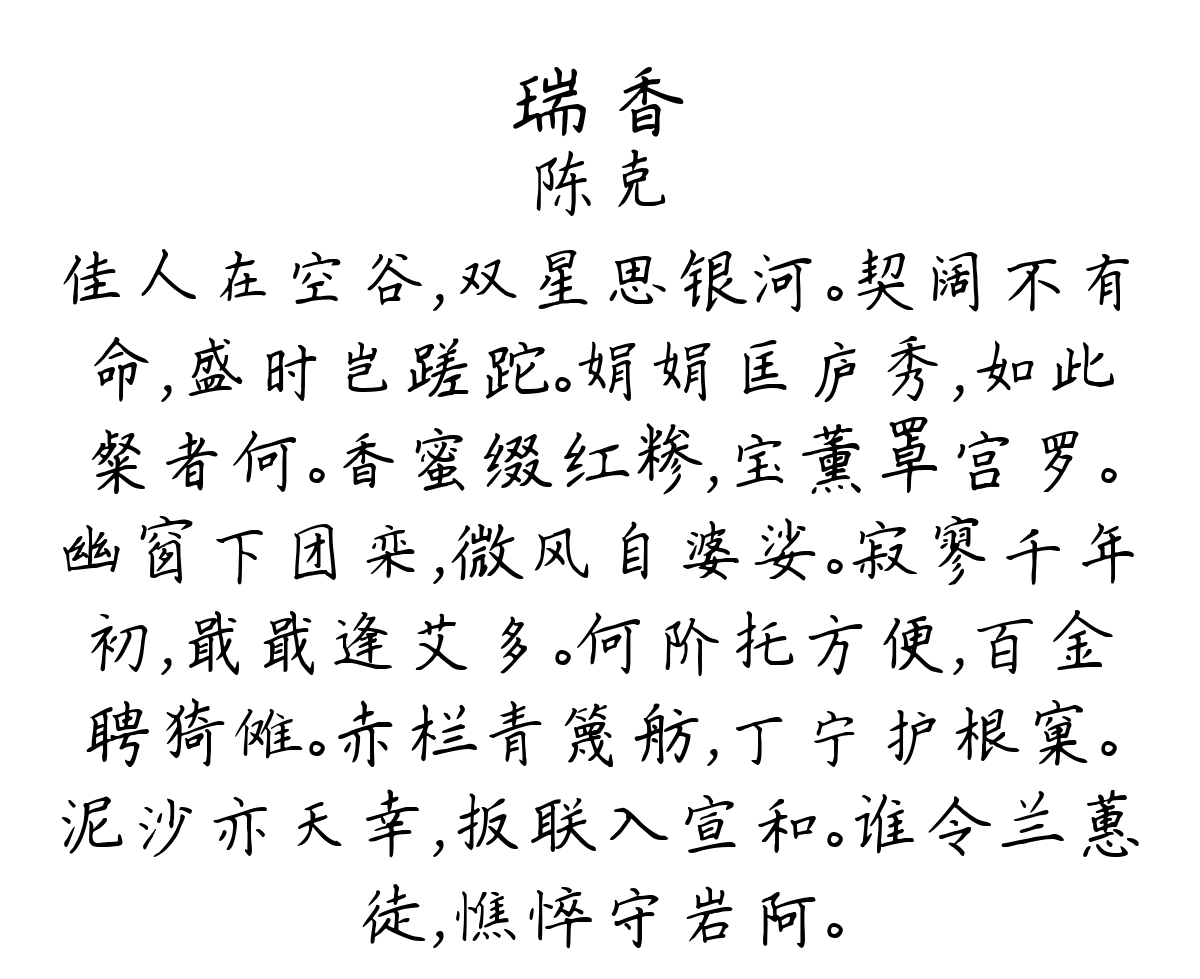 瑞香
陈克
佳人在空谷,双星思银河。契阔不有
命,盛时岂蹉跎。娟娟匡庐秀,如此
粲者何。香蜜缀红糁,宝薰罩宫罗。
幽窗下团栾,微风自婆娑。寂寥千年
初,戢戢逢艾多。何阶托方便,百金
聘猗傩。赤栏青篾舫,丁宁护根窠。
泥沙亦天幸,扳联入宣和。谁令兰蕙
徒,憔悴守岩阿。